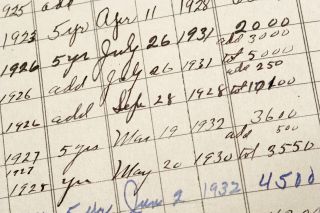 1925 add 1928
1923 5 yr Apr 11 2000
1926 5 yr July 26 1931 add 3000
tol 5000
1926 add July 26 1931 add 250
1926 add Sep 28 1928 tol
1927 5 yrs Mar 19 1932 3600
add 500
1927
1925 yrs May 20 1930 tol 3550
5 yrs June 2 1932 4500